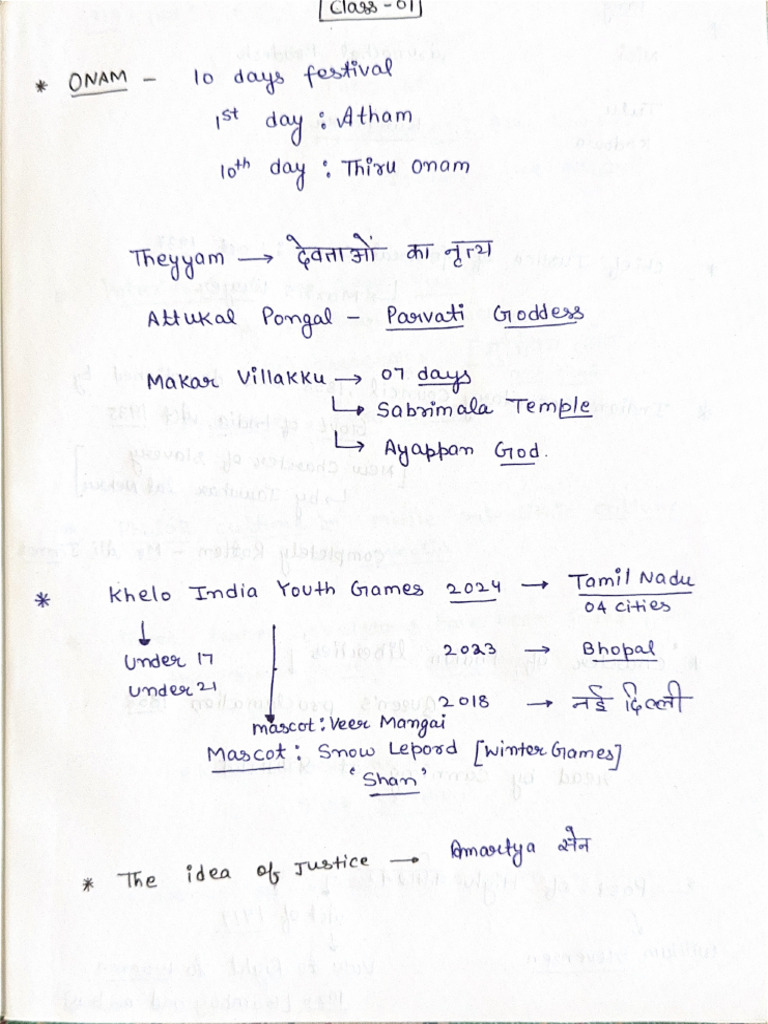 Class - 01
* ONAM - 10 days festival
1st day : Atham
10th day : Thiru Onam
Theyyam → देवताओं का नृत्य
Attukal Pongal - Parvati Goddess
Makar Villakku → 07 days
↳ Sabrimala Temple
↳ Ayappan God.
* Khelo India Youth Games 2024 → Tamil Nadu
04 cities
↓ Under 17
2023 → Bhopal
Under 21
2018 → नई दिल्ली
mascot : Veer Mangai
Mascot : Snow Lepord [Winter Games]
'Shan'
* The idea of Justice → Amartya सेन